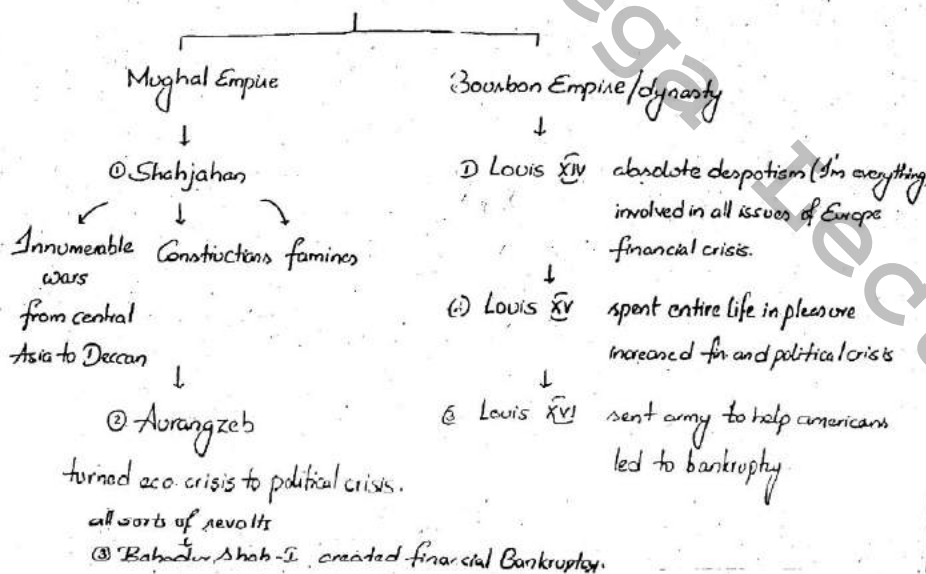 Mughal Empire
Bourbon Empire/dynasty
① Shahjahan
Innumerable
wars
from central
Asia to Deccan
Constructions
famines
② Aurangzeb
turned eco. crisis to political crisis.
all sorts of revolts
③ Bahadur Shah-I created financial Bankruptcy.
1) Louis XIV absolute despotism (I'm everything
involved in all issues of Europe
financial crisis.
Louis XV spent entire life in pleasure
increased fin and political crisis
Louis XVI sent army to help americans
led to bankruphy.
ega Lec